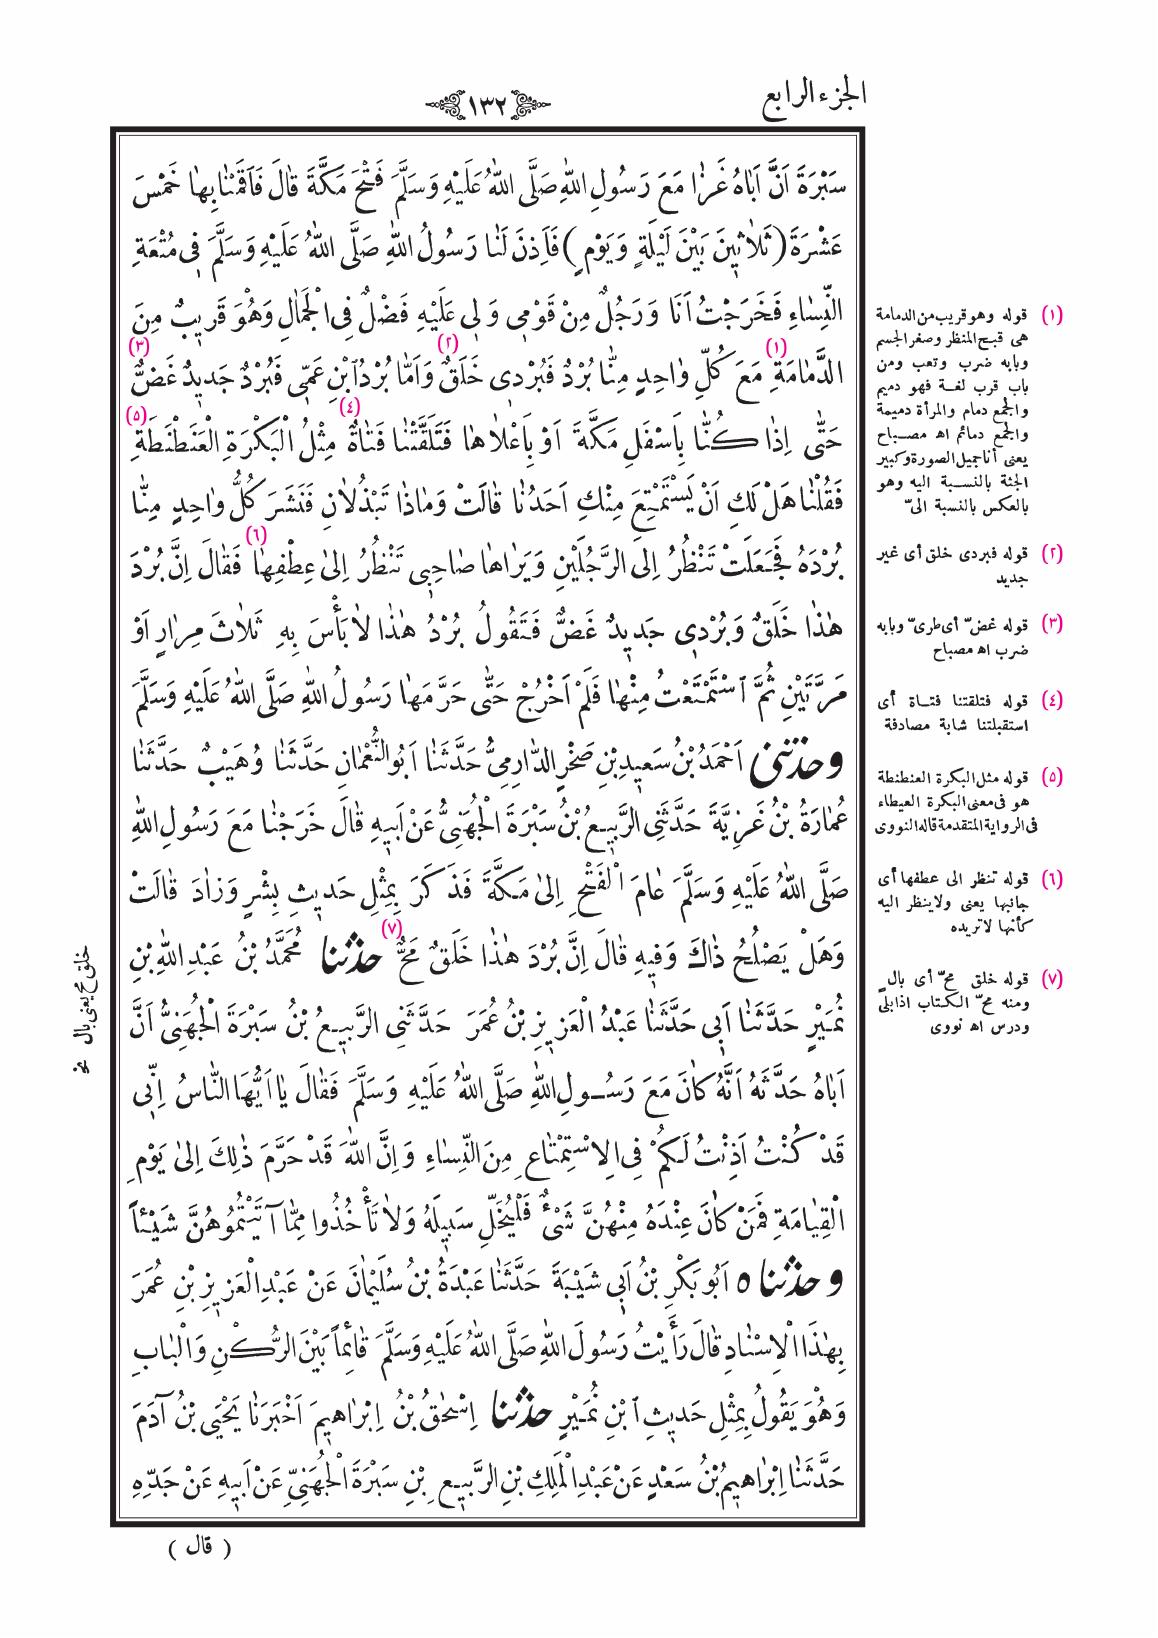 الجزء الرابع
١٣٢
سَبْرَةَ اَنَّ اَبَاهُ غَزَا مَعَ رَسُولِ اللّٰهِ صَلَّى اللّٰهُ عَلَيْهِ وَسَلَّمَ فَتْحَ مَكَّةَ قَالَ فَاَقَمْنَا بِهَا خَمْسَ
عَشْرَةَ (ثَلَاثِينَ بَيْنَ لَيْلَةٍ وَيَوْمٍ) فَاَذِنَ لَنَا رَسُولُ اللّٰهِ صَلَّى اللّٰهُ عَلَيْهِ وَسَلَّمَ فِي مُتْعَةِ
النِّسَاءِ فَخَرَجْتُ اَنَا وَرَجُلٌ مِنْ قَوْمِي وَلِي عَلَيْهِ فَضْلٌ فِي الْجَمَالِ وَهُوَ قَرِيبٌ مِنَ
الدَّمَامَةِ (١) مَعَ كُلِّ وَاحِدٍ مِنَّا بُرْدٌ فَبُرْدِي خَلَقٌ (٢) وَاَمَّا بُرْدُ ابْنِ عَمِّي فَبُرْدٌ جَدِيدٌ غَضٌّ (٣)
حَتّٰى اِذَا كُنَّا بِاَسْفَلِ مَكَّةَ اَوْ بِاَعْلَاهَا فَتَلَقَّتْنَا فَتَاةٌ (٤) مِثْلُ الْبَكْرَةِ الْعَنَطْنَطَةِ (٥)
فَقُلْنَا هَلْ لَكِ اَنْ يَسْتَمْتِعَ مِنْكِ اَحَدُنَا قَالَتْ وَمَاذَا تَبْذُلَانِ فَنَشَرَ كُلُّ وَاحِدٍ مِنَّا
بُرْدَهُ فَجَعَلَتْ تَنْظُرُ اِلَى الرَّجُلَيْنِ وَيَرَاهَا صَاحِبِي تَنْظُرُ اِلٰى عِطْفِهَا (٦) فَقَالَ اِنَّ بُرْدَ
هٰذَا خَلَقٌ وَبُرْدِي جَدِيدٌ غَضٌّ فَتَقُولُ بُرْدُ هٰذَا لَا بَأْسَ بِهِ ثَلَاثَ مِرَارٍ اَوْ
مَرَّتَيْنِ ثُمَّ اسْتَمْتَعْتُ مِنْهَا فَلَمْ اَخْرُجْ حَتّٰى حَرَّمَهَا رَسُولُ اللّٰهِ صَلَّى اللّٰهُ عَلَيْهِ وَسَلَّمَ
وحدثنى اَحْمَدُ بْنُ سَعِيدِ بْنِ صَخْرٍ الدَّارِمِيُّ حَدَّثَنَا اَبُو النُّعْمَانِ حَدَّثَنَا وُهَيْبٌ حَدَّثَنَا
عُمَارَةُ بْنُ غَزِيَّةَ حَدَّثَنِي الرَّبِيعُ بْنُ سَبْرَةَ الْجُهَنِيُّ عَنْ اَبِيهِ قَالَ خَرَجْنَا مَعَ رَسُولِ اللّٰهِ
صَلَّى اللّٰهُ عَلَيْهِ وَسَلَّمَ عَامَ الْفَتْحِ اِلٰى مَكَّةَ فَذَكَرَ بِمِثْلِ حَدِيثِ بِشْرٍ وَزَادَ قَالَتْ
وَهَلْ يَصْلُحُ ذَاكَ وَفِيهِ قَالَ اِنَّ بُرْدَ هٰذَا خَلَقٌ مَحٌّ (٧) حدثنا مُحَمَّدُ بْنُ عَبْدِ اللّٰهِ بْنِ
نُمَيْرٍ حَدَّثَنَا اَبِي حَدَّثَنَا عَبْدُ الْعَزِيزِ بْنُ عُمَرَ حَدَّثَنِي الرَّبِيعُ بْنُ سَبْرَةَ الْجُهَنِيُّ اَنَّ
اَبَاهُ حَدَّثَهُ اَنَّهُ كَانَ مَعَ رَسُولِ اللّٰهِ صَلَّى اللّٰهُ عَلَيْهِ وَسَلَّمَ فَقَالَ يَا اَيُّهَا النَّاسُ اِنِّي
قَدْ كُنْتُ اَذِنْتُ لَكُمْ فِي الِاسْتِمْتَاعِ مِنَ النِّسَاءِ وَاِنَّ اللّٰهَ قَدْ حَرَّمَ ذٰلِكَ اِلٰى يَوْمِ
الْقِيَامَةِ فَمَنْ كَانَ عِنْدَهُ مِنْهُنَّ شَيْءٌ فَلْيُخَلِّ سَبِيلَهُ وَلَا تَأْخُذُوا مِمَّا آتَيْتُمُوهُنَّ شَيْئاً
وحدثنا ٥ اَبُو بَكْرِ بْنُ اَبِي شَيْبَةَ حَدَّثَنَا عَبْدَةُ بْنُ سُلَيْمَانَ عَنْ عَبْدِ الْعَزِيزِ بْنِ عُمَرَ
بِهٰذَا الْاِسْنَادِ قَالَ رَأَيْتُ رَسُولَ اللّٰهِ صَلَّى اللّٰهُ عَلَيْهِ وَسَلَّمَ قَائِماً بَيْنَ الرُّكْنِ وَالْبَابِ
وَهُوَ يَقُولُ بِمِثْلِ حَدِيثِ ابْنِ نُمَيْرٍ حدثنا اِسْحٰقُ بْنُ اِبْرَاهِيمَ اَخْبَرَنَا يَحْيَى بْنُ آدَمَ
حَدَّثَنَا اِبْرَاهِيمُ بْنُ سَعْدٍ عَنْ عَبْدِ الْمَلِكِ بْنِ الرَّبِيعِ بْنِ سَبْرَةَ الْجُهَنِيِّ عَنْ اَبِيهِ عَنْ جَدِّهِ
( قال )
(١) قوله وهو قريب من الدمامة
هى قبح المنظر وصغر الجسم
وبابه ضرب وتعب ومن
باب قرب لغة فهو دميم
والجمع دمام والمرأة دميمة
والجمع دمائم اه مصباح
يعنى أنا جميل الصورة وكبير
الجثة بالنسبة اليه وهو
بالعكس بالنسبة الىّ
(٢) قوله فبردى خلق أى غير
جديد
(٣) قوله غضّ أى طرىّ وبابه
ضرب اه مصباح
(٤) قوله فتلقتنا فتاة أى
استقبلتنا شابة مصادفة
(٥) قوله مثل البكرة العنطنطة
هو فى معنى البكرة العيطاء
فى الرواية المتقدمة قاله النووى
(٦) قوله تنظر الى عطفها أى
جانبها يعنى ولا ينظر اليه
كأنها لا تريده
(٧) قوله خلق محّ أى بال
ومنه محّ الكتاب اذا بلى
ودرس اه نووى
خلق مح يعنى بال نخ